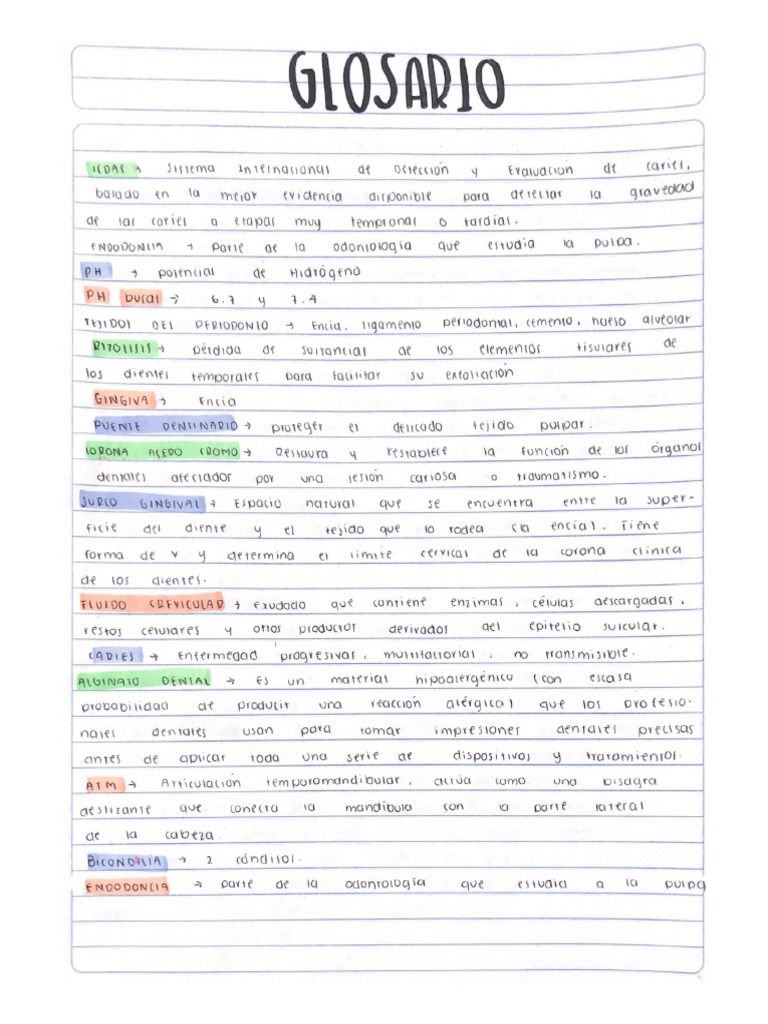 GLOSARIO
ICDAS → Sistema Internacional de Detección y Evaluación de caries,
basado en la mejor evidencia disponible para detectar la gravedad
de las caries a etapas muy tempranas o tardías.
ENDODONCIA → Parte de la odontología que estudia la pulpa.
PH → potencial de Hidrógeno
PH bucal → 6.7 y 7.4
TEJIDOS DEL PERIODONIO → Encía, ligamento periodontal, cemento, hueso alveolar
RIZOLISIS → Pérdida de sustancias de los elementos tisulares de
los dientes temporales para facilitar su exfoliación
GINGIVA → Encía
PUENTE DENTINARIO → proteger el delicado tejido pulpar.
CORONA ACERO CROMO → Restaura y restablece la función de los órganos
dentales afectados por una lesión cariosa o traumatismo.
SURCO GINGIVAL → Espacio natural que se encuentra entre la super-
ficie del diente y el tejido que lo rodea (la encía). Tiene
forma de V y determina el límite cervical de la corona clínica
de los dientes.
FLUIDO CREVICULAR → exudado que contiene enzimas, células descargadas,
restos celulares y otros productos derivados del epitelio sulcular.
CARIES → Enfermedad progresivas, multifactorial, no transmisible.
ALGINATO DENTAL → Es un material hipoalergénico (con escasa
probabilidad de producir una reacción alérgica) que los profesio-
nales dentales usan para tomar impresiones dentales precisas
antes de aplicar toda una serie de dispositivos y tratamientos.
ATM → Articulación temporomandibular, actúa como una bisagra
deslizante que conecta la mandíbula con la parte lateral
de la cabeza.
BICONDILIA → 2 cóndilos.
ENDODONCIA → parte de la odontología que estudia a la pulpa